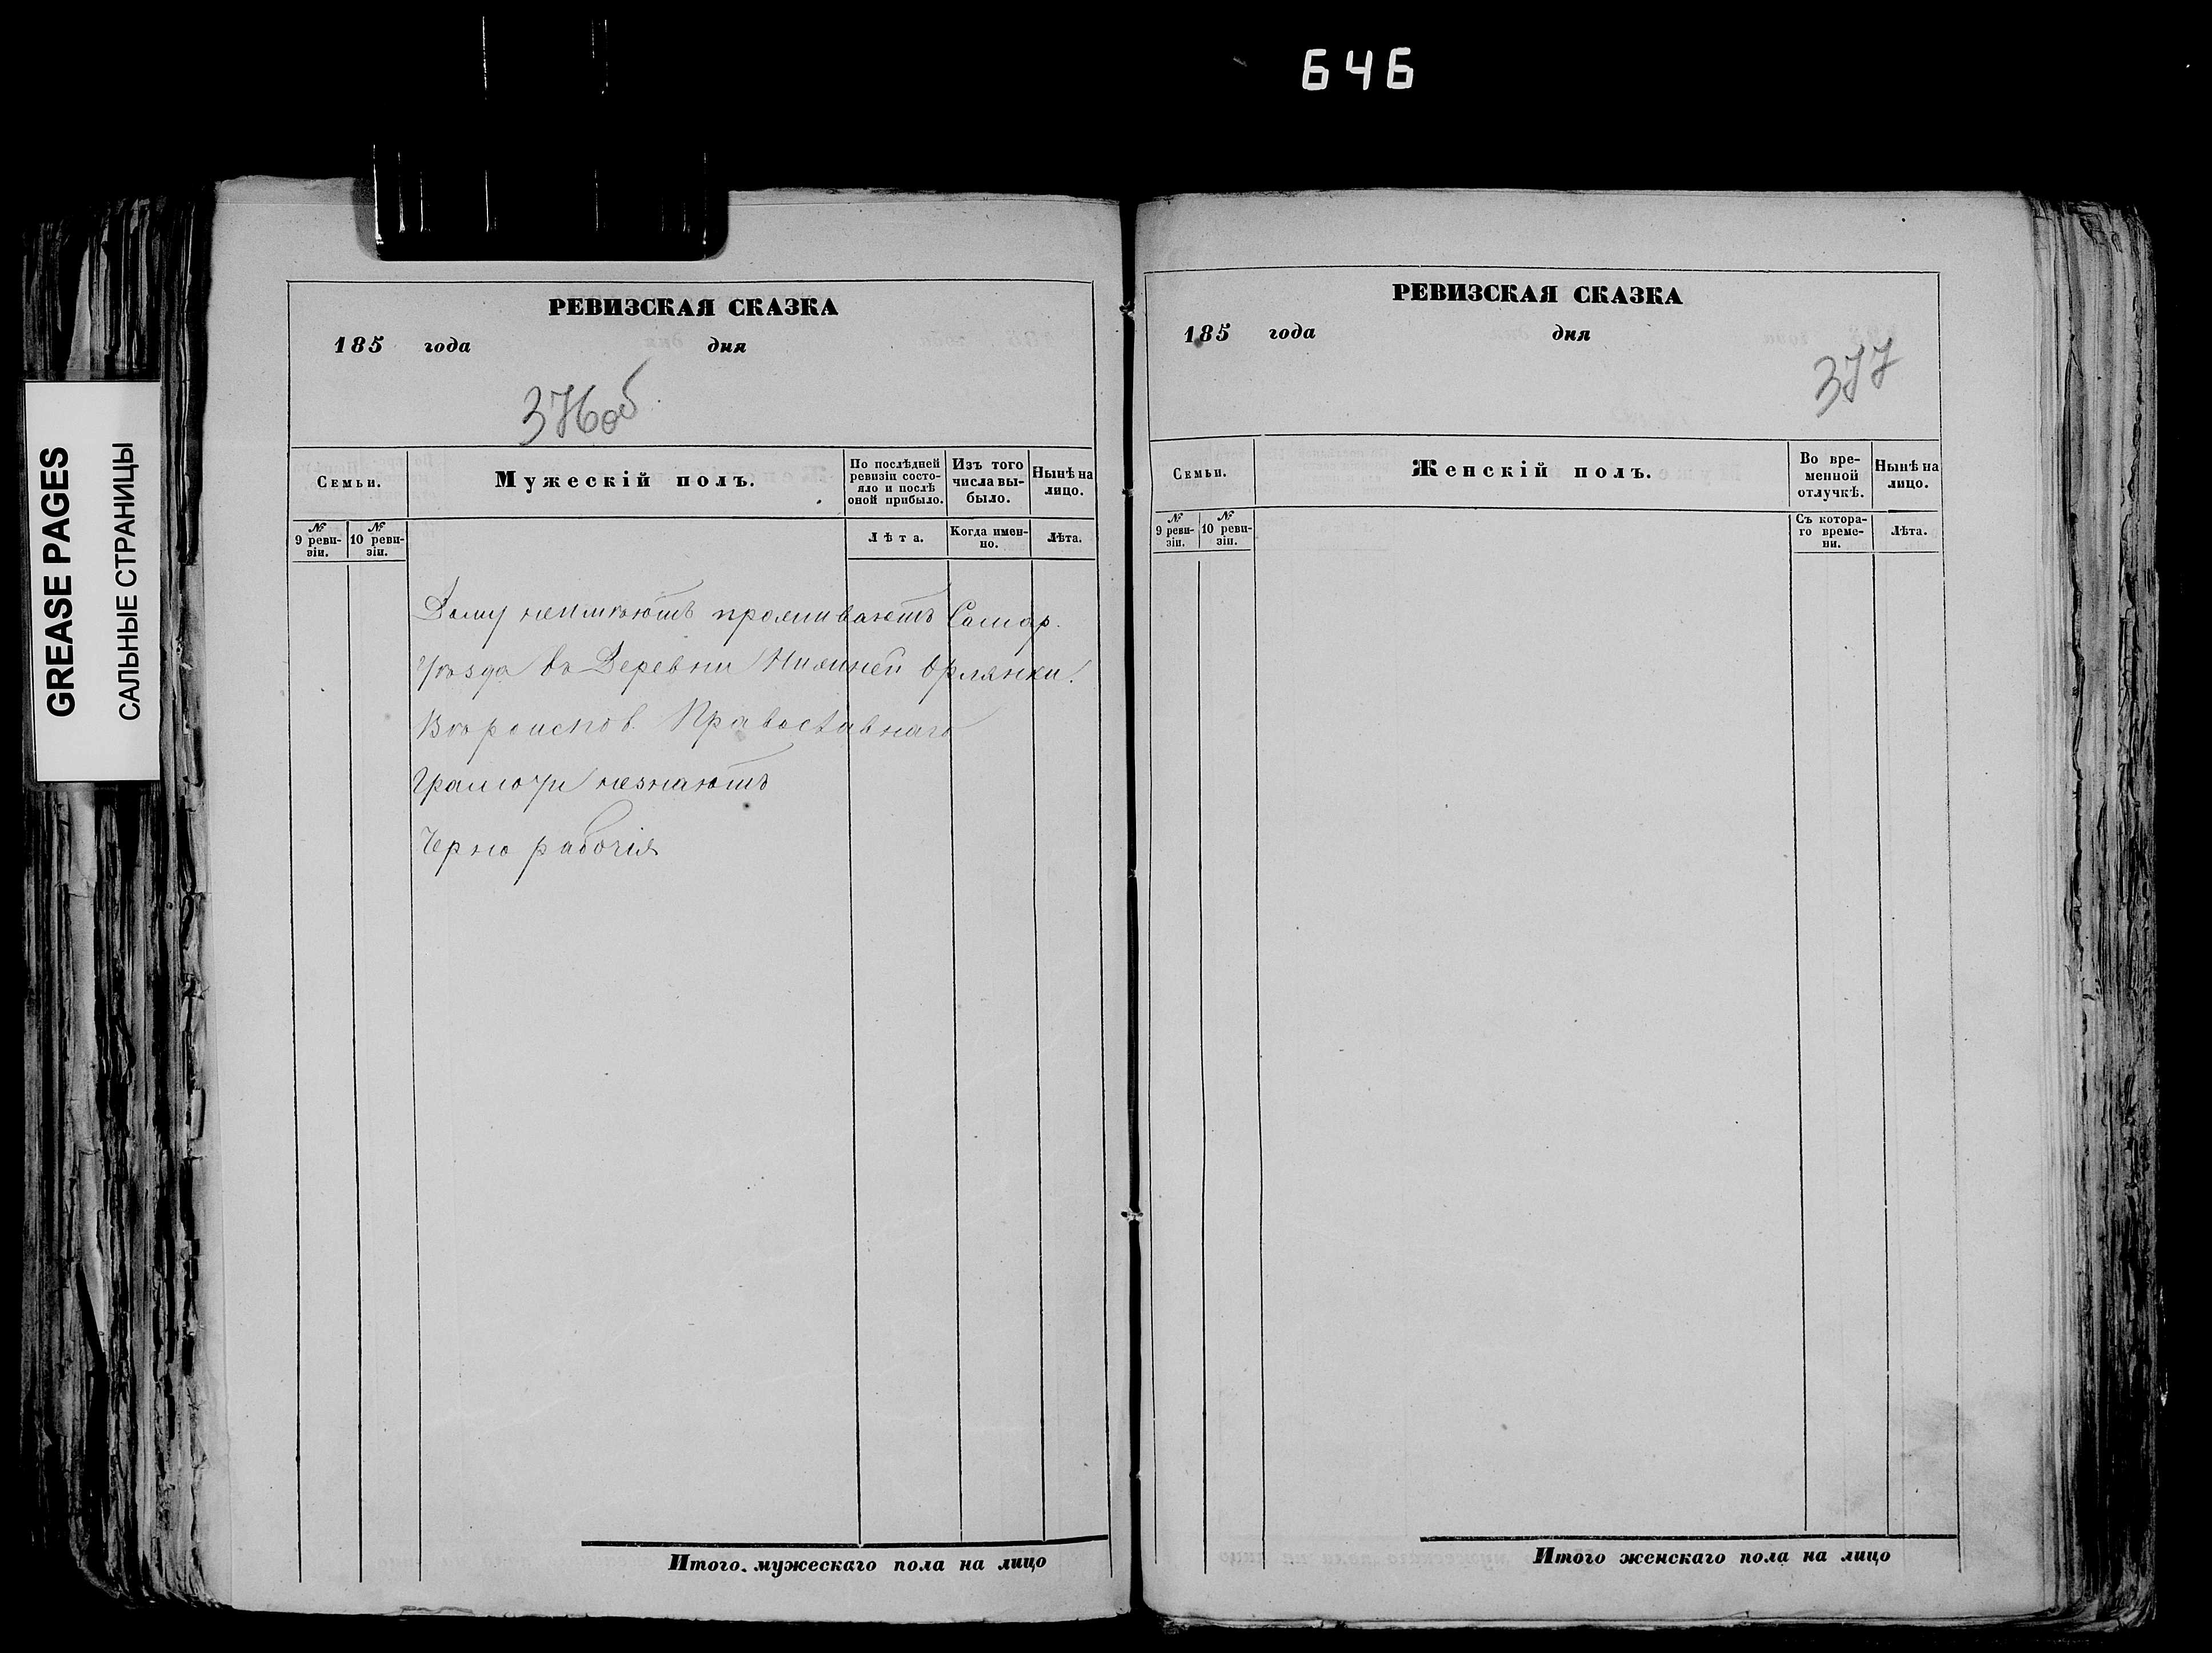 646
GREASE PAGES
САЛЬНЫЕ СТРАНИЦЫ
РЕВИЗСКАЯ СКАЗКА
185 года дня
376об
Семьи.
Мужескій полъ.
По послѣдней ревизіи состояло и послѣ оной прибыло.
Изъ того числа выбыло.
Нынѣ на лицо.
№ 9 ревизіи.
№ 10 ревизіи.
Лѣта.
Когда именно.
Лѣта.
Дому неимѣютъ проживаютъ Самар.
Уѣзда въ Деревни Нижней Орлянки.
Вѣроиспов. Православнаго
Грамоти незнаютъ
Черно рабочія
Итого мужескаго пола на лицо
РЕВИЗСКАЯ СКАЗКА
185 года дня
377
Семьи.
Женскій полъ.
Во временной отлучкѣ.
Нынѣ на лицо.
№ 9 ревизіи.
№ 10 ревизіи.
Съ котораго времени.
Лѣта.
Итого женскаго пола на лицо